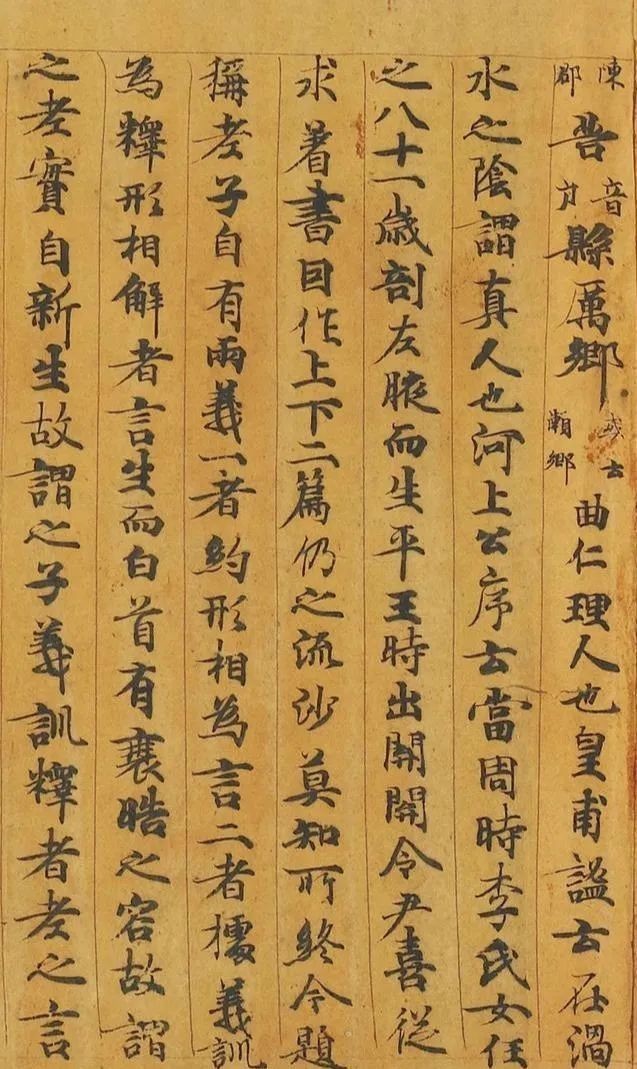 陳郡苦音户縣厲鄉或云瀨鄉曲仁理人也皇甫謐云在渦
水之陰謂真人也河上公序云當周時李氏女任
之八十一歲剖左腋而生平王時出開開令尹喜從
求著書因作上下二篇仍之流沙莫知所終今題
稱老子自有兩義一者約形相為言二者據義訓
為釋形相解者言生而白首有衰晧之容故謂
之老實自新生故謂之子義訓釋者老之言